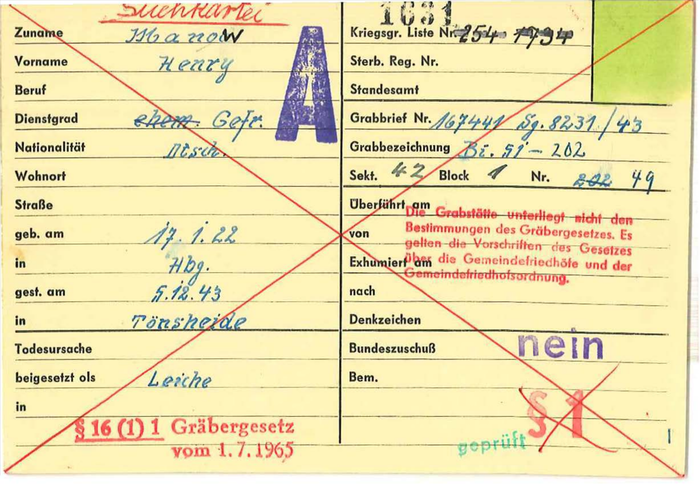 Suchkartei
Zuname Ismanow
Vorname Henry
Beruf
Dienstgrad ehem. Gefr.
Nationalität Dtsch.
Wohnort
Straße
geb. am 17.1.22
in Hbg.
gest. am 5.12.43
in Tönsheide
Todesursache
beigesetzt als Leiche
in
§ 16 (1) 1 Gräbergesetz
vom 1.7.1965
A
1631
Kriegsgr. Liste Nr. 254 1734
Sterb. Reg. Nr.
Standesamt
Grabbrief Nr. 167441 Sg. 8231/43
Grabbezeichnung Bi. 51 - 202
Sekt. 42 Block 1 Nr. 202 49
Überführt am
von
Exhumiert am
nach
Die Grabstätte unterliegt nicht den
Bestimmungen des Gräbergesetzes. Es
gelten die Vorschriften des Gesetzes
über die Gemeindefriedhöfe und der
Gemeindefriedhofsordnung.
Denkzeichen
Bundeszuschuß nein
Bem.
§ 1
geprüft